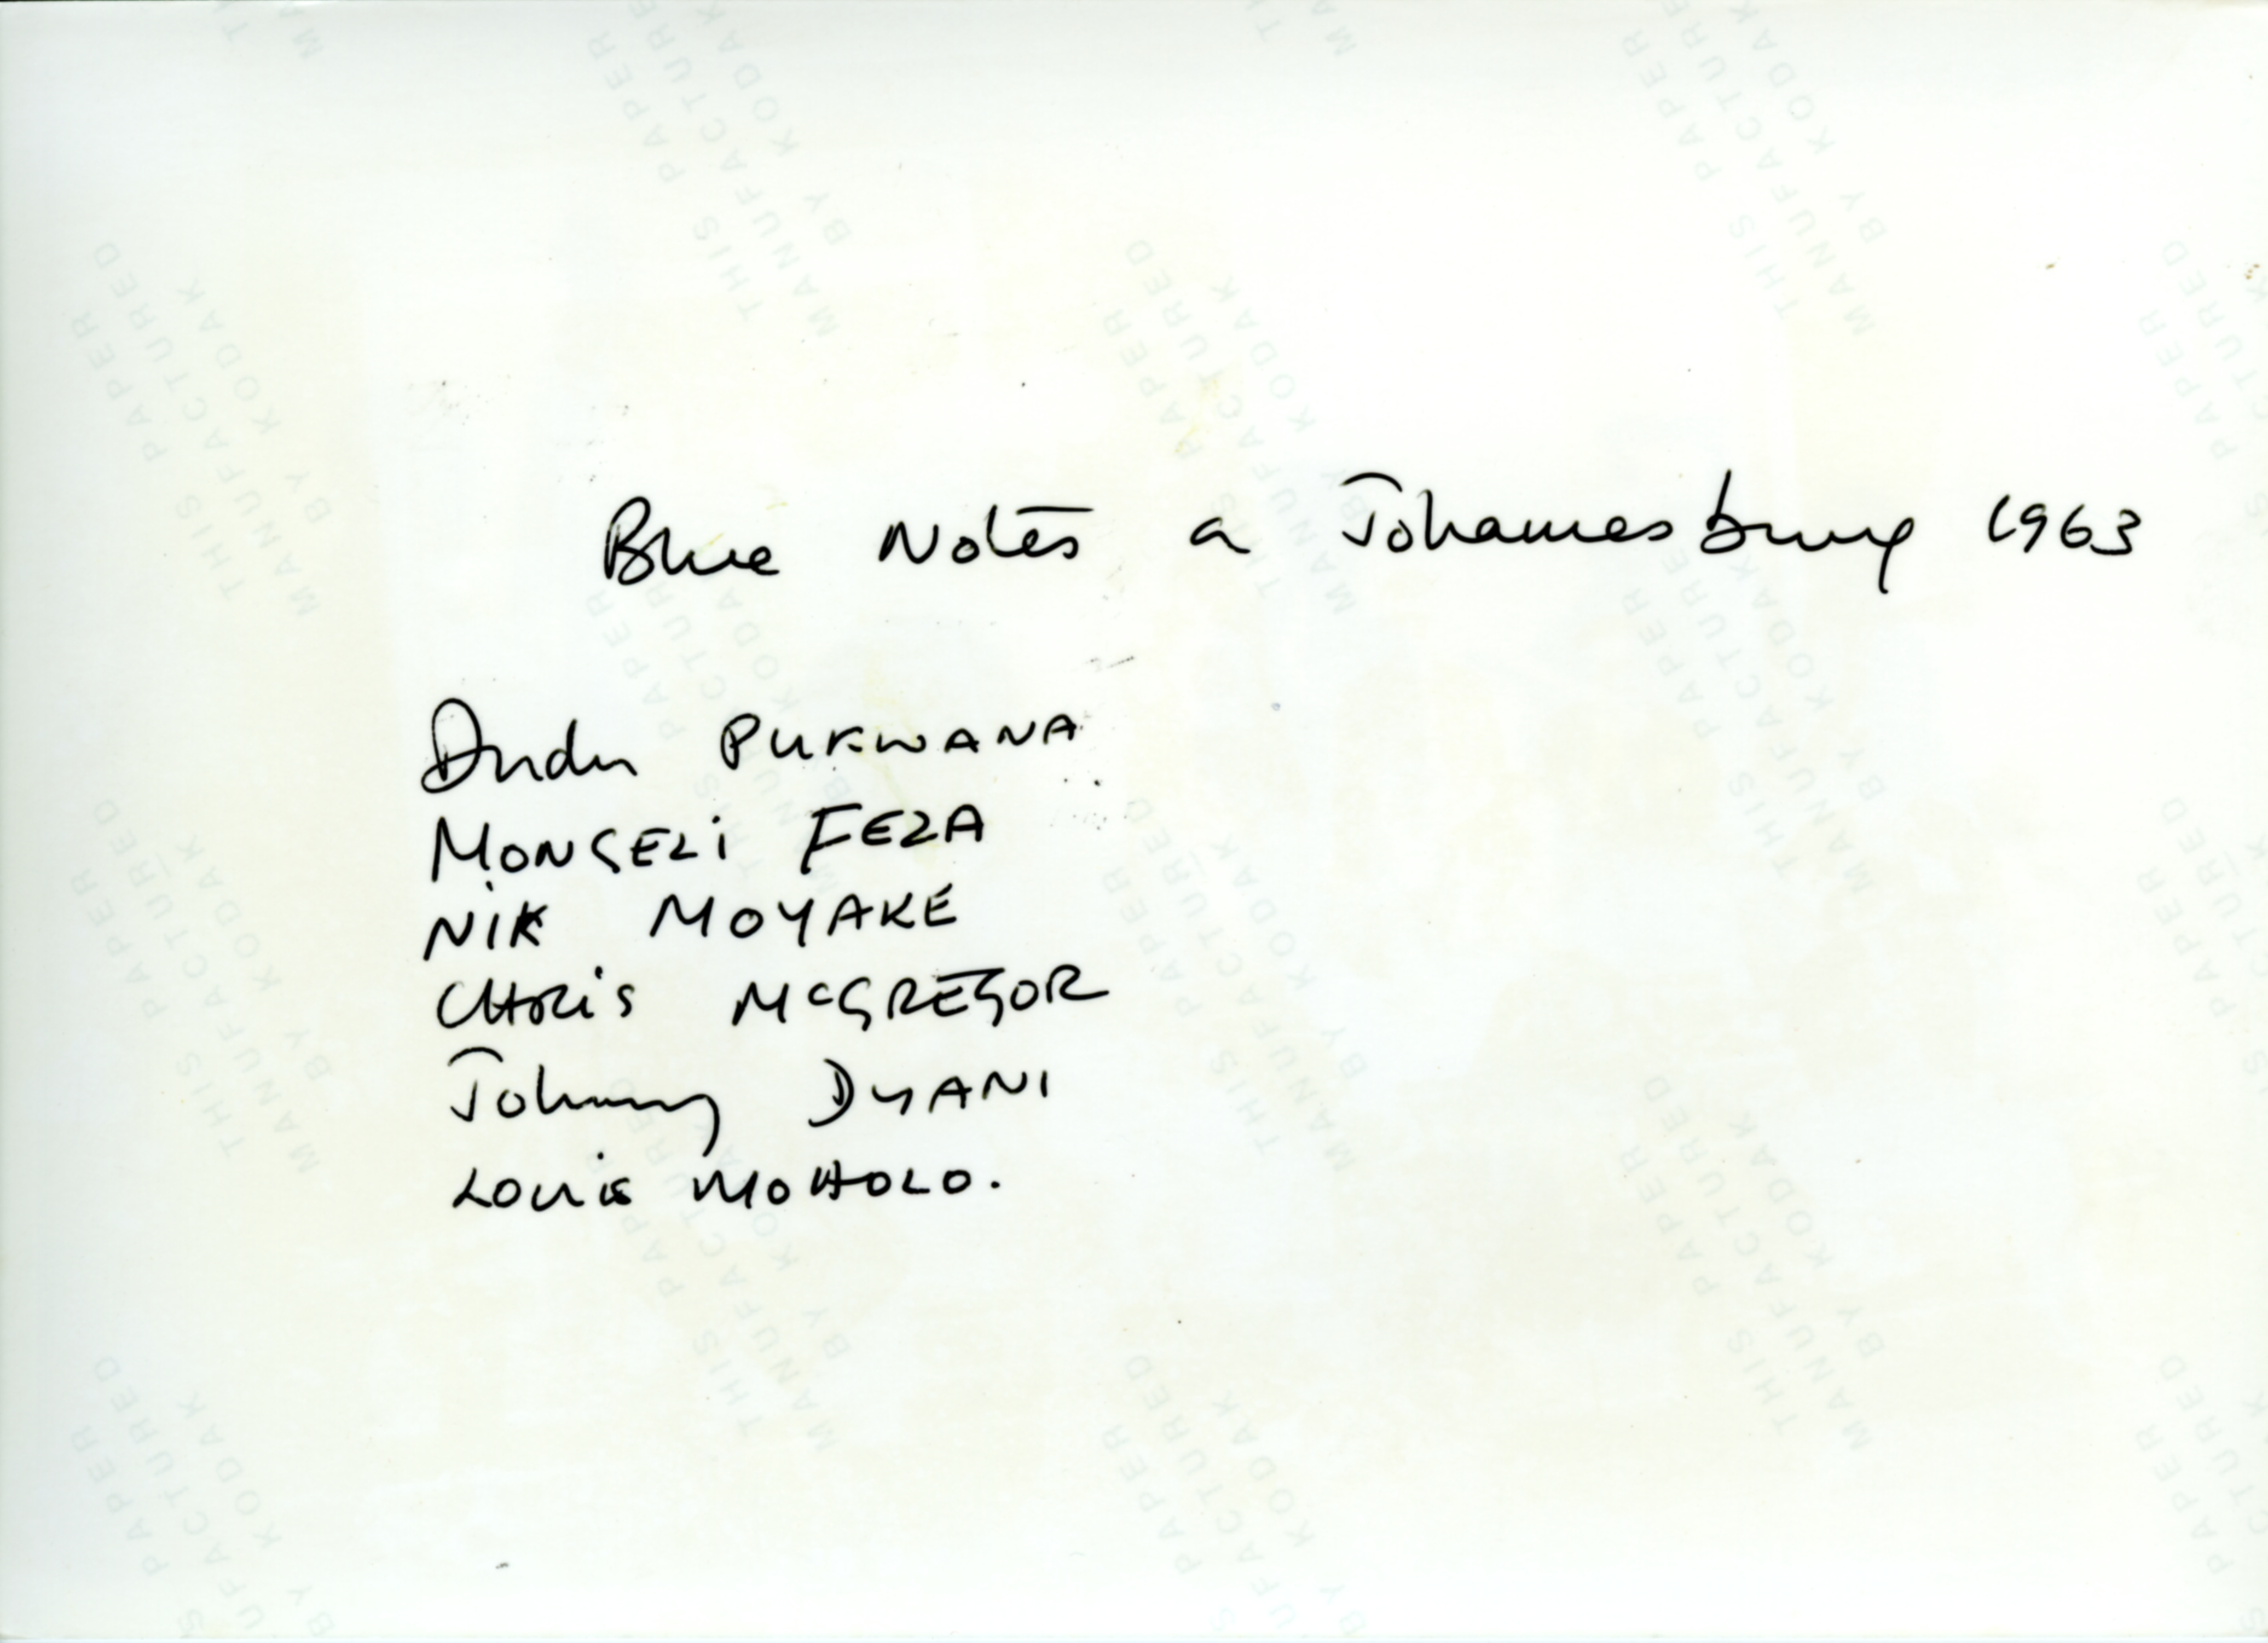 Blue Notes a Johannesburg 1963
Dudu PUKWANA
MONGEZI FEZA
NIK MOYAKE
CHRIS McGREGOR
Johnny DYANI
Louis MOHOLO.
THIS PAPER
MANUFACTURED
BY KODAK